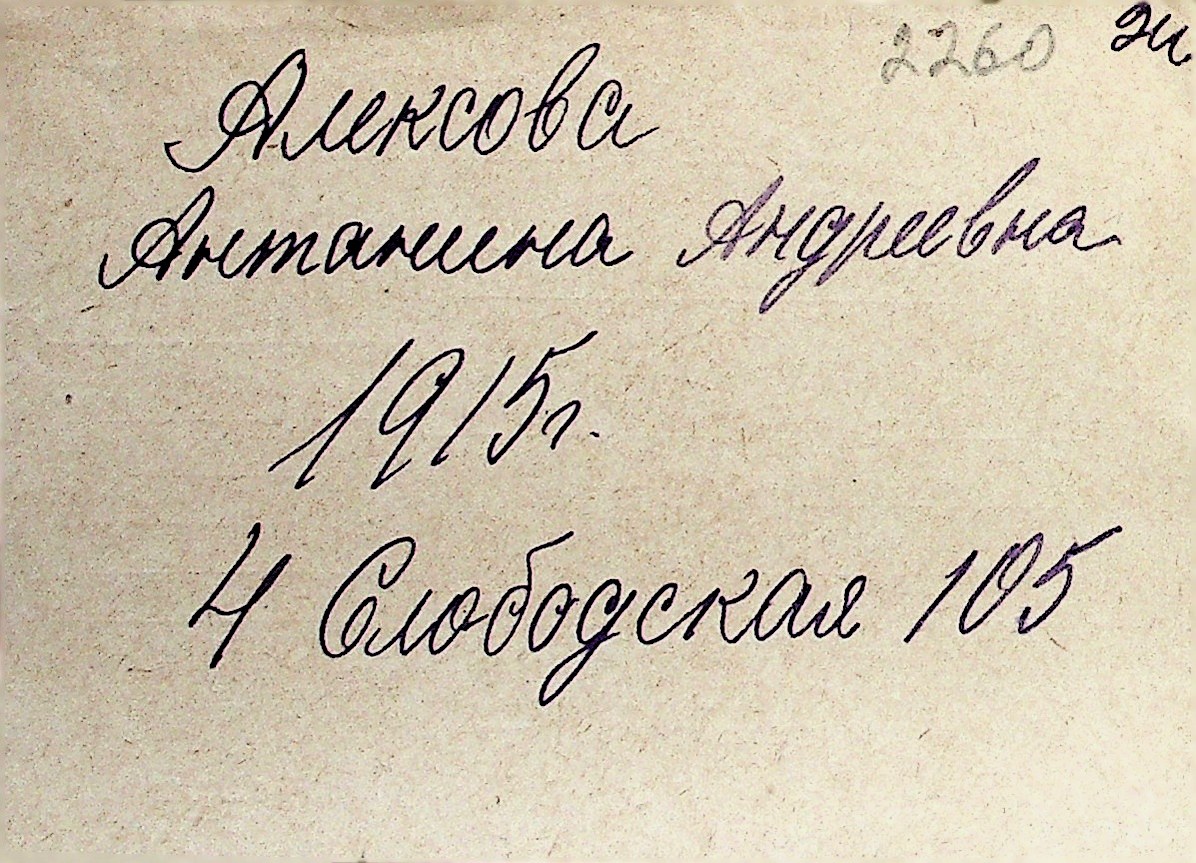 2260
Алексова
Антанина Андреевна
1915г.
4 Слободская 105